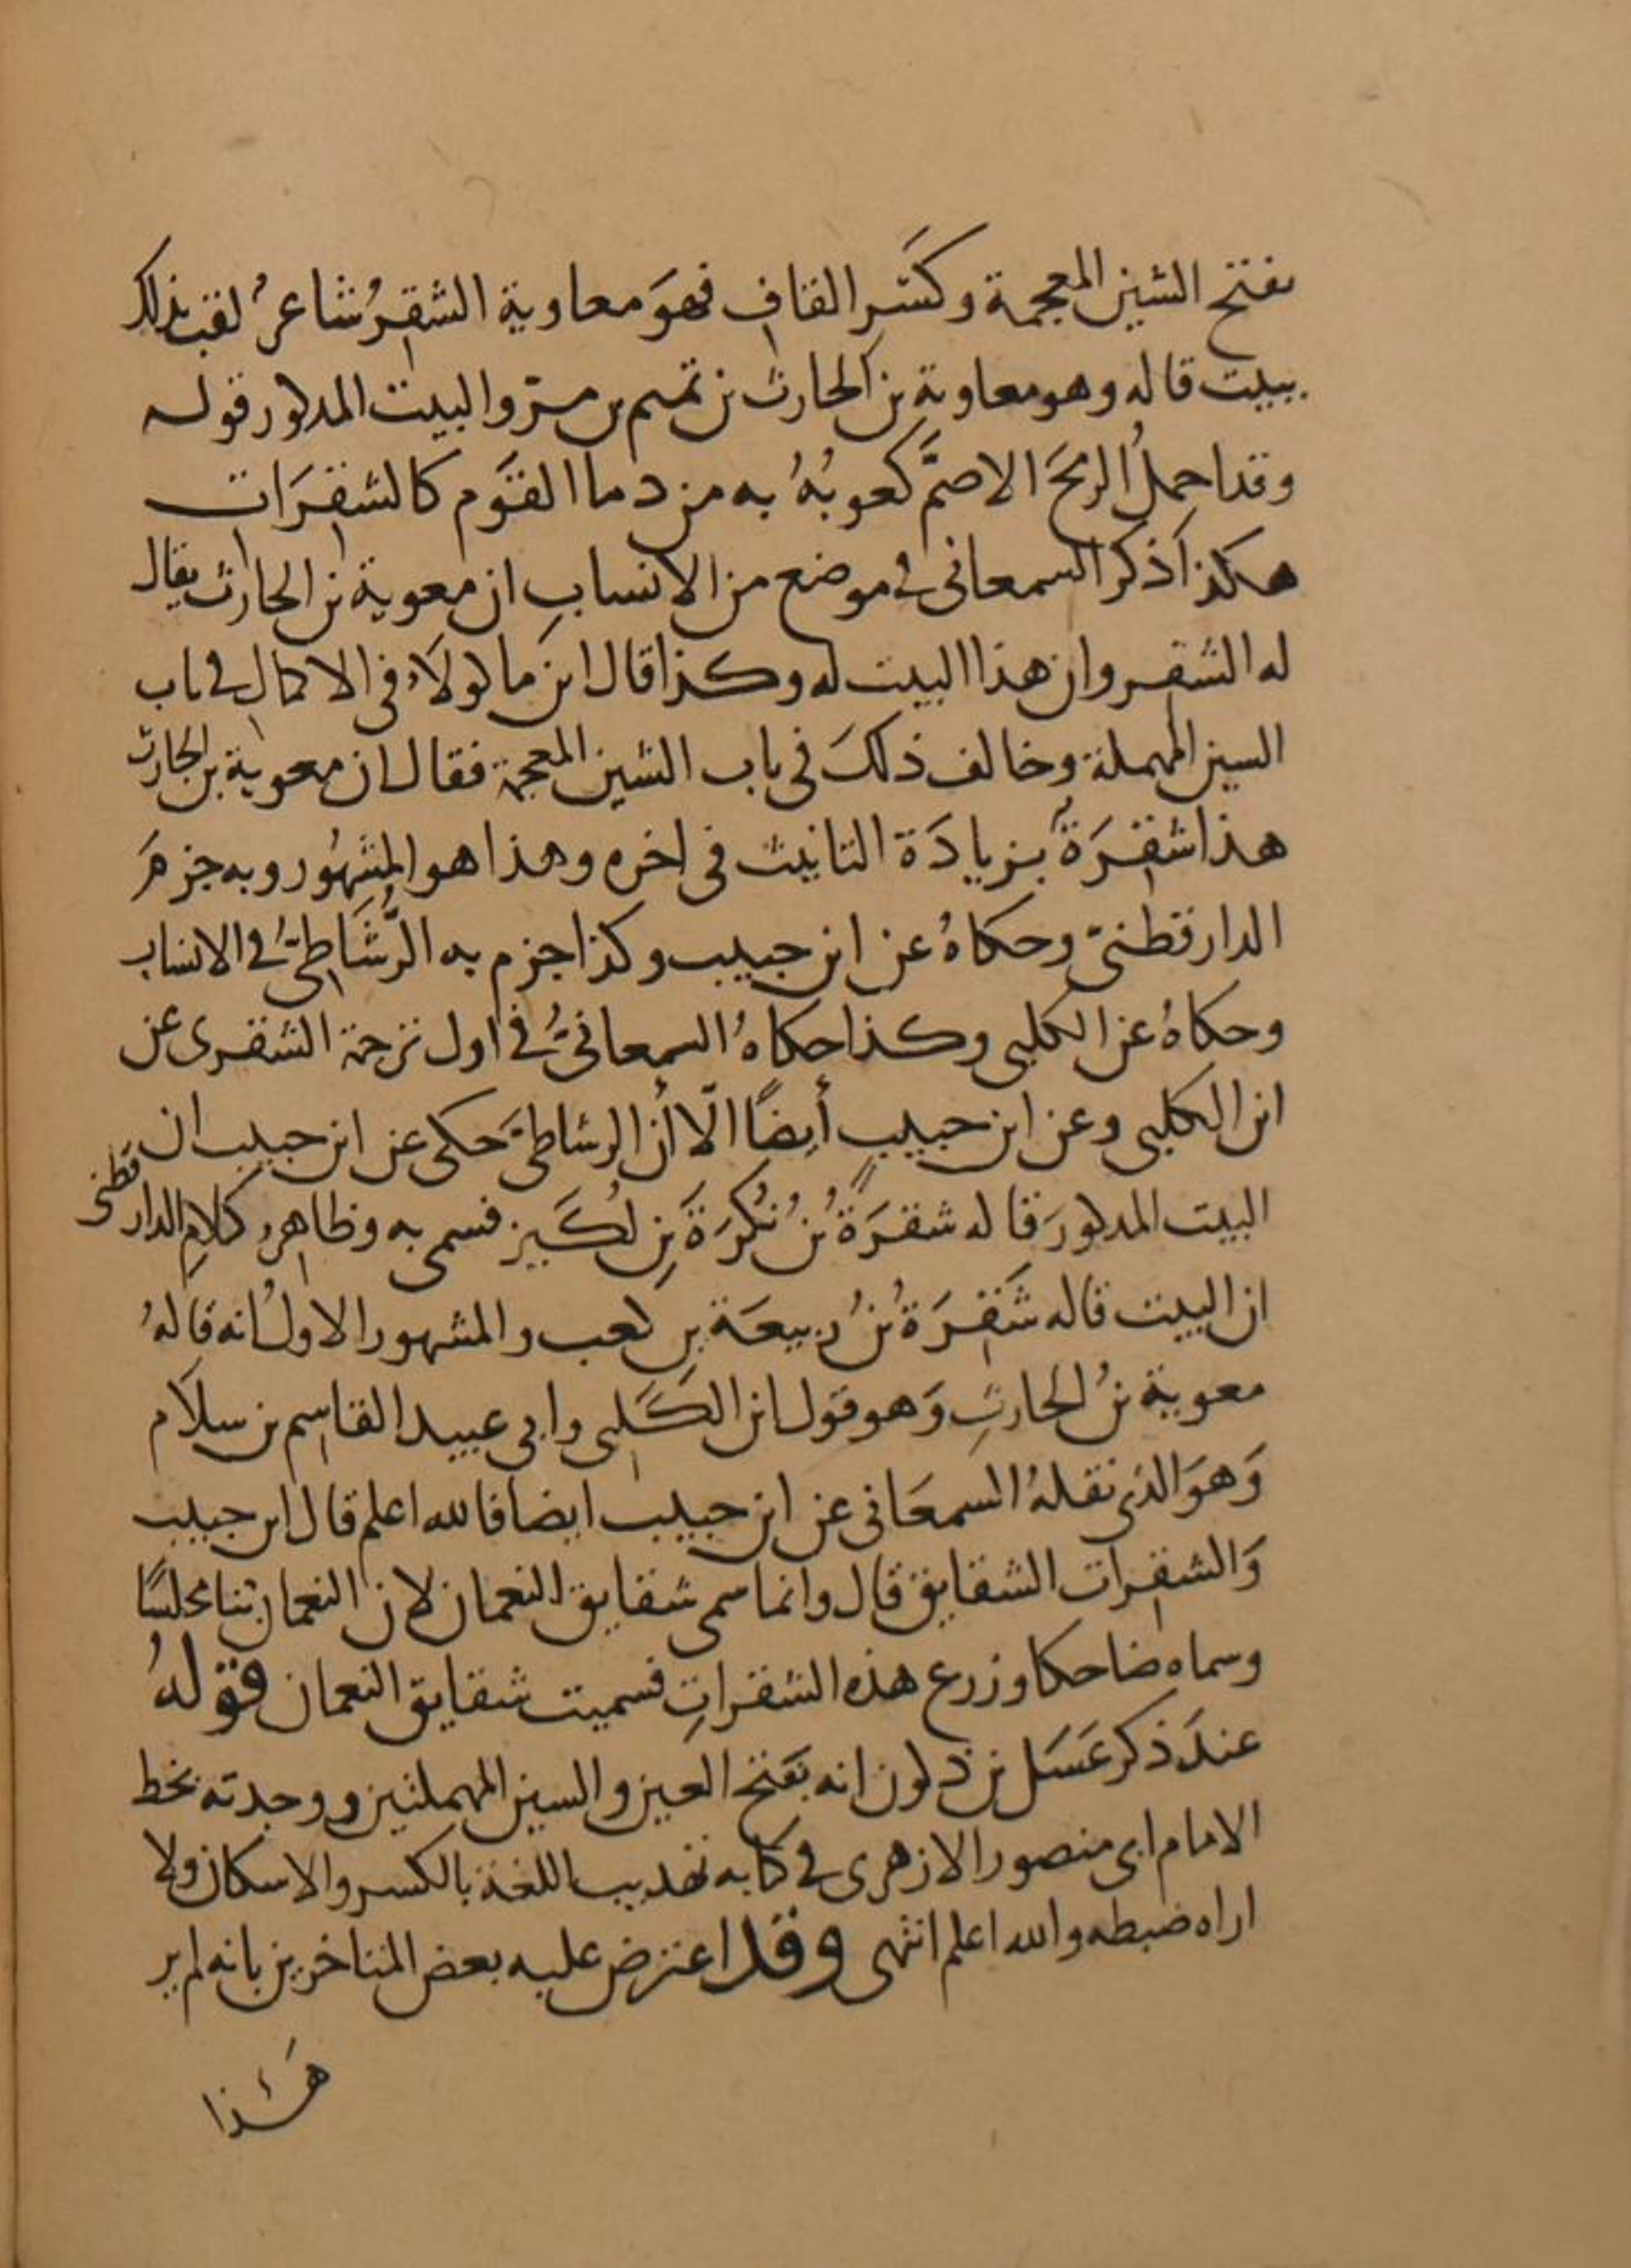 بفتح الشين المعجمة وكسر القاف فهو معاوية الشقر شاعر لقب بذلك
ببيت قاله وهو معاوية بن الحارث بن تميم بن مرّ والبيت المذكور قوله
وقد احمل الرمح الاصمَّ كعوبُهُ به من دما القوم كالشقرات
هكذا ذكر السمعانى في موضع من الانساب ان معوية بن الحارث يقال
له الشقر وان هذا البيت له وكذا قال ابن ماكولاء في الاكمال في باب
السين المهملة وخالف ذلك في باب الشين المعجمة فقال ان معوية بن الحارث
هذا شقرة بزيادة التانيث في اخره وهذا هو المشهور وبه جزم
الدارقطنىّ وحكاهُ عن ابن حبيب وكذا جزم به الرُّشَاطىّ في الانساب
وحكاهُ عن الكلبى وكذا حكاهُ السمعانىُّ في اول ترجمة الشقرى عن
ابن الكلبى وعن ابن حبيب أيضًا الّا أن الرشاطىّ حكى عن ابن حبيب ان
البيت المذكور قاله شقرَةُ بنُ نُكرَةَ بنِ لُكَيز فسمى به وظاهر كلام الدارقطنى
ان البيت قاله شَقِرَةُ بنُ ربيعَة بن كعب والمشهور الاول انه قالهُ
معوية بنُ الحارثِ وَهو قول ابن الكَلبى وابى عبيد القاسم بن سلاَم
وَهوَ الذى نقلهُ السمعَانى عن ابن حبيب ايضا فالله اعلم قال ابن حبيب
وَالشقرات الشقايق قال وانما سمى شقايق النعمان لان النعمان بنا مجلسًا
وسماه ضاحكا وزرع هذه الشقراتِ فسميت شقايق النعمان قوله
عندَ ذكر عَسَل بن ذكوان انه بفتح العين والسين المهملتين ووجدته بخط
الامام ابى منصور الازهرى في كتابه تهذيب اللغة بالكسر والاسكان ولا
اراه ضبطه والله اعلم انتهى وقد اعترض عليه بعض المتاخرين بانه لم ير
هَذا